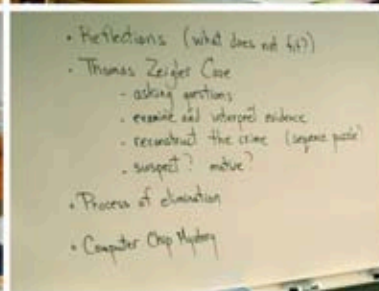 • Reflections (what does not fit?)
• Thomas Zeigler Case
- asking questions
- examine and interpret evidence
- reconstruct the crime (sequence puzzle)
- suspect? motive?
• Process of elimination
• Computer Chip Mystery